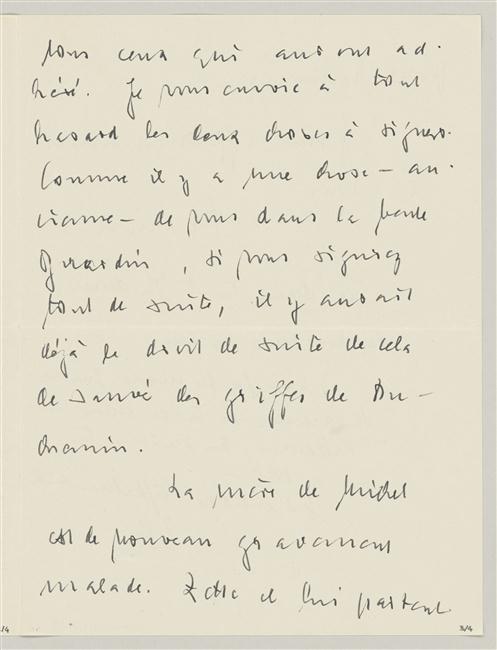 tous ceux qui auront ad-
héré. Je vous envoie à tout
hasard les deux choses à signer.
Comme il y a une chose – an-
cienne – de vous dans la vente
Girardin, si vous signiez
tout de suite, il y aurait
déjà le droit de suite de cela
de sauvé des griffes de Du-
chemin.
La mère de Michel
est de nouveau gravement
malade. Zette et lui partent
/4
3/4